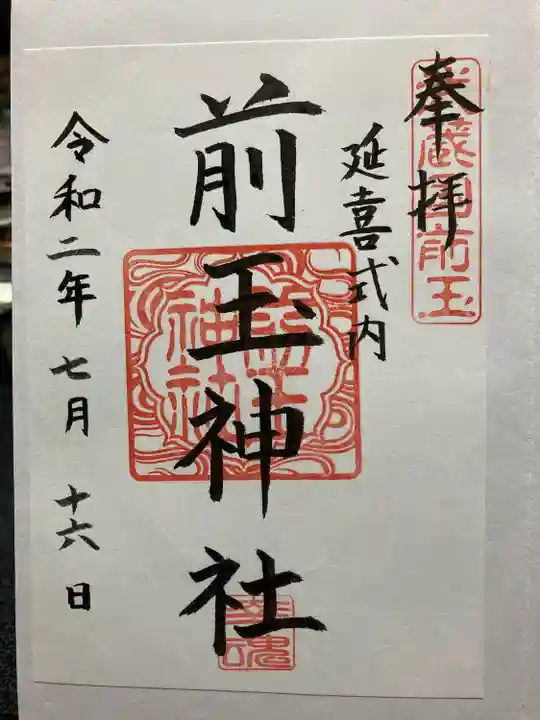 奉拝
武蔵国前玉
延喜式内
前玉神社
前玉神社
幸魂
令和二年 七月 十六日